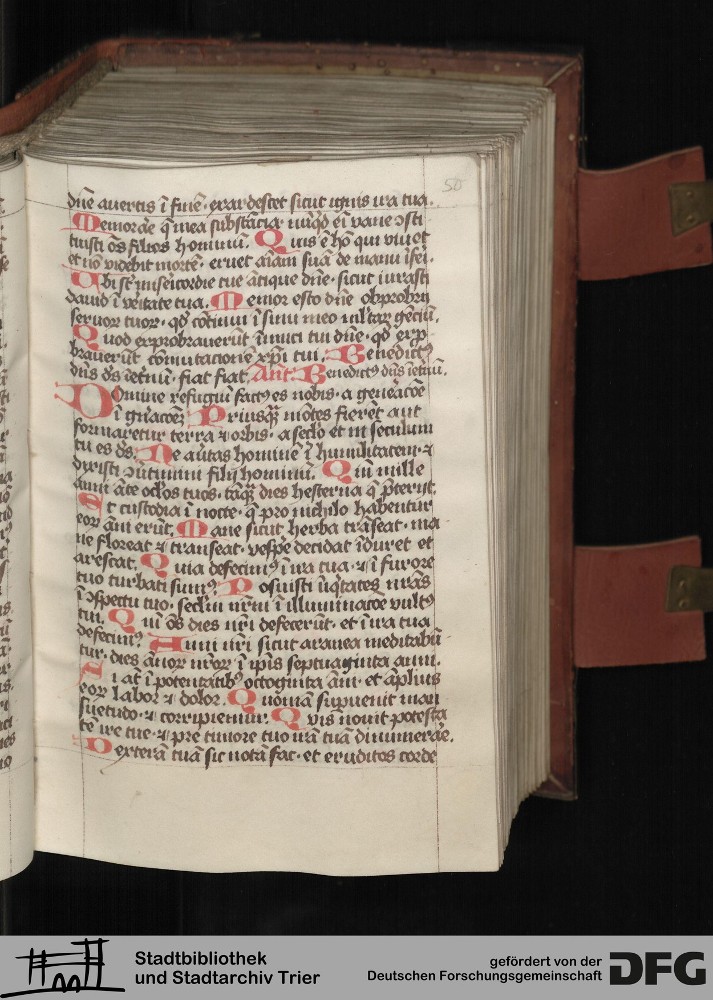 50
dñe avertis ĩ finẽ · exardescet sicut ignis ira tua.
Memorare q̃ mea substãcia nũqd eñ vane ɔsti
tuisti oẽs filios hominũ. Quis ẽ hõ qui vivet
et nõ videbit mortẽ · eruet aĩam suã de manu ĩferi.
Ubi sũt misericordie tue ãtique dñe · sicut iurasti
david ĩ veritate tua. Memor esto dñe obprobrij
servoꝝ tuoꝝ · qđ cõtinui ĩ sinu meo multaꝝ genciũ.
Quod exprobraverũt inimici tui dñe · qđ exp̱
braverũt cõmutacionẽ xp̃i tui. Benedictꝰ
dñs ĩ etnũ · fiat fiat. Añt. Benedictꝰ dñs ĩetnũ.
Domine refugiũ factꝰ es nobis · a gen̾acõe
ĩ gn̾acõeꝫ Priusq̃ȝ mõtes fierẽt aut
formaretur terra ⁊ orbis · a sec̾lo et in seculum
tu es dš. Ne av̾tas hominẽ ĩ humilitatem · ⁊
dixisti ɔv̾timini filij hominũ. Qm̃ mille
anni ãte oc̾los tuos · tãq̃ȝ dies hesterna q̃ p̃teriit.
Et custodia ĩ nocte · q̃ pro nichilo habentur
eoꝝ ãni erũt. Mane sicut herba trãseat · ma
ne floreat ⁊ transeat · vesp̱e decidat ĩduret et
arescat. Quia defecimꝰ ĩ ira tua · ⁊ ĩ furore
tuo turbati sumꝰ. Posuisti iniq̾tates nr̃as
ĩ ɔspectu tuo · sec̾lm nr̃m ĩ illuminacõe vultꝰ
tui. Qm̃ oẽs dies nr̃i defecerũt · et ĩ ira tua
defecimꝰ. Anni nr̃i sicut aranea meditabũ
tur · dies ãnoꝝ nr̃oꝝ ĩ ip̃is septuaginta anni.
Si aũt ĩ potentatibꝰ octoginta ãni · et ãplius
eoꝝ labor ⁊ dolor. Quoniã sup̱venit man
suetudo · ⁊ corripiemur. Quis novit potesta
tẽ ire tue · ⁊ pre timore tuo irã tuã dinumerare.
Dexterã tuã sic notã fac · et eruditos corde
Stadtbibliothek
und Stadtarchiv Trier
gefördert von der
Deutschen Forschungsgemeinschaft DFG